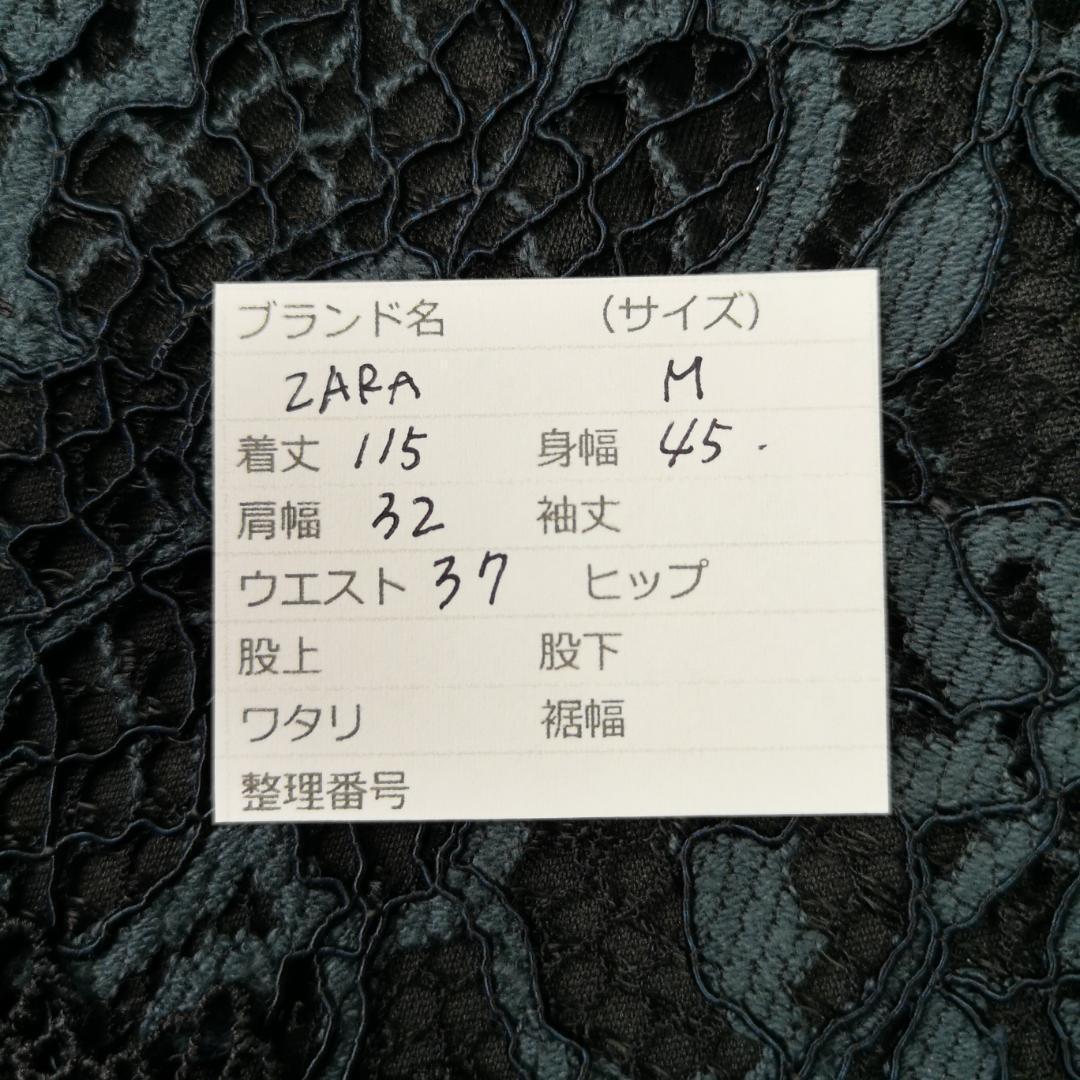 ブランド名 （サイズ）
ZARA M
着丈 115 身幅 45
肩幅 32 袖丈
ウエスト 37 ヒップ
股上 股下
ワタリ 裾幅
整理番号